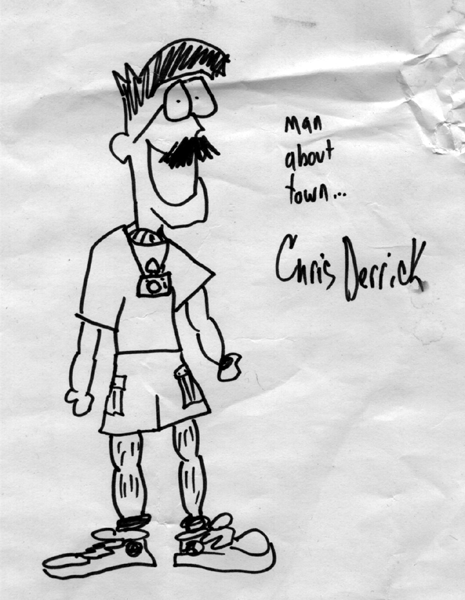 man
about
town...
Chris Derrick